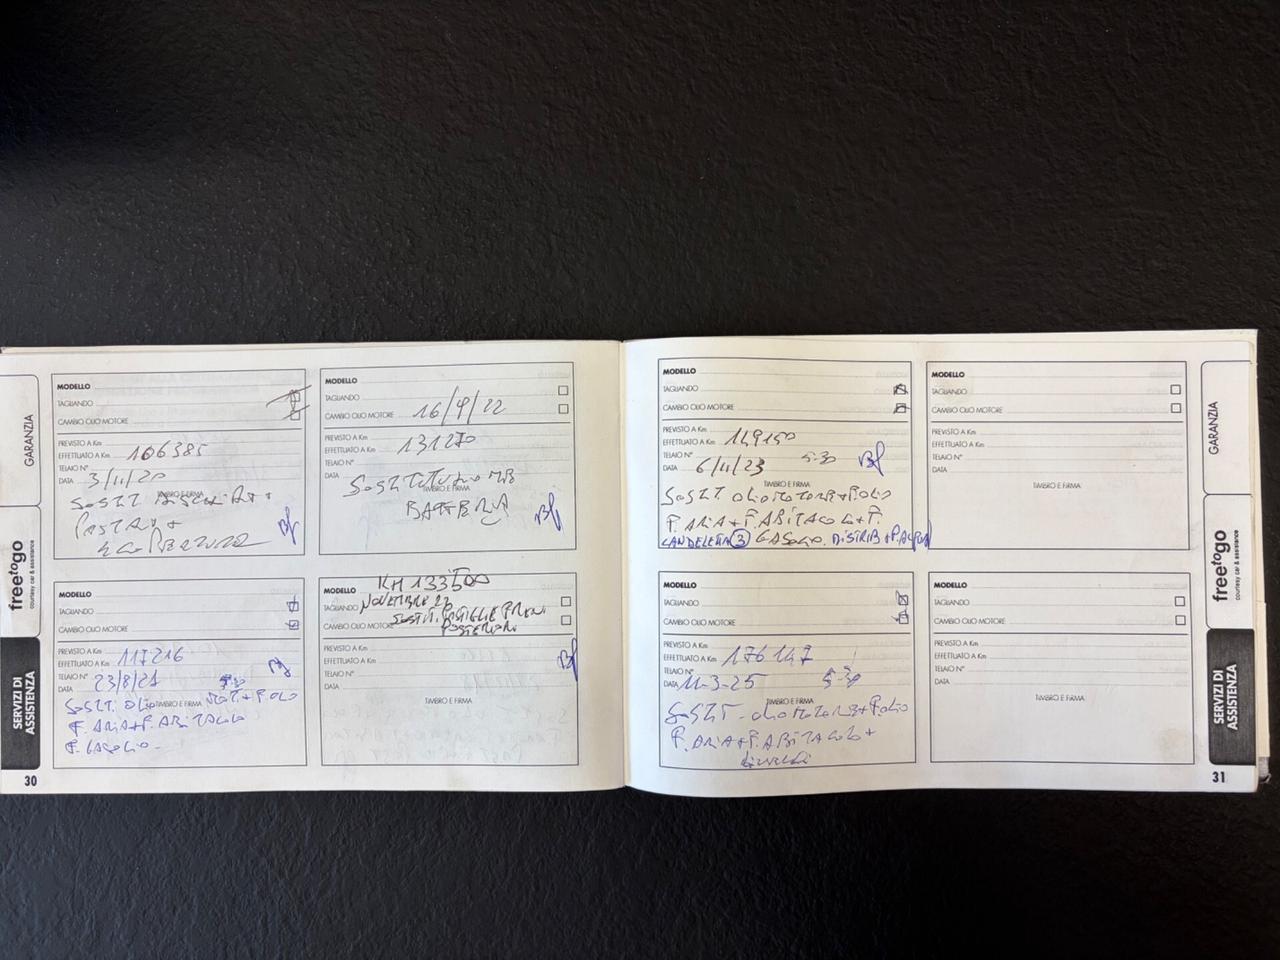 GARANZIA
freetogo
courtesy car & assistance
SERVIZI DI
ASSISTENZA
30
MODELLO
TAGLIANDO
CAMBIO OLIO MOTORE
PREVISTO A Km
EFFETTUATO A Km 106385
TELAIO N°
DATA 3/11/20
TIMBRO E FIRMA
SOSTIT
PASTA
MODELLO
TAGLIANDO
CAMBIO OLIO MOTORE 16/9/22
PREVISTO A Km
EFFETTUATO A Km 131270
TELAIO N°
DATA
TIMBRO E FIRMA
BATTERIA
MODELLO
TAGLIANDO
CAMBIO OLIO MOTORE
PREVISTO A Km
EFFETTUATO A Km 117216
TELAIO N° 5-30
DATA 23/8/21
TIMBRO E FIRMA
SOSTIT. OLIO MOT + F. OLIO
F. ARIA + F. ABITACOLO
F. GASOLIO -
KM 133500
MODELLO
TAGLIANDO NOVEMBRE 22
CAMBIO OLIO MOTORE SOSTIT. PASTIGLIE FRENI
POSTERIORI
PREVISTO A Km
EFFETTUATO A Km
TELAIO N°
DATA
TIMBRO E FIRMA
MODELLO
TAGLIANDO
CAMBIO OLIO MOTORE
PREVISTO A Km
EFFETTUATO A Km 149150
TELAIO N° 5-30
DATA 6/11/23
TIMBRO E FIRMA
SOSTIT OLIO MOTORE + F. OLIO
F. ARIA + F. ABITACOLO + F.
CANDELETTA 3 GASOLIO. DISTRIB + P. ACQUA
MODELLO
TAGLIANDO
CAMBIO OLIO MOTORE
PREVISTO A Km
EFFETTUATO A Km
TELAIO N°
DATA
TIMBRO E FIRMA
MODELLO
TAGLIANDO
CAMBIO OLIO MOTORE
PREVISTO A Km
EFFETTUATO A Km 176147
TELAIO N° 5-30
DATA 11-3-25
TIMBRO E FIRMA
SOSTIT - OLIO MOTORE + F. OLIO
F. ARIA + F. ABITACOLO +
LIVELLI
MODELLO
TAGLIANDO
CAMBIO OLIO MOTORE
PREVISTO A Km
EFFETTUATO A Km
TELAIO N°
DATA
TIMBRO E FIRMA
GARANZIA
freetogo
courtesy car & assistance
SERVIZI DI
ASSISTENZA
31